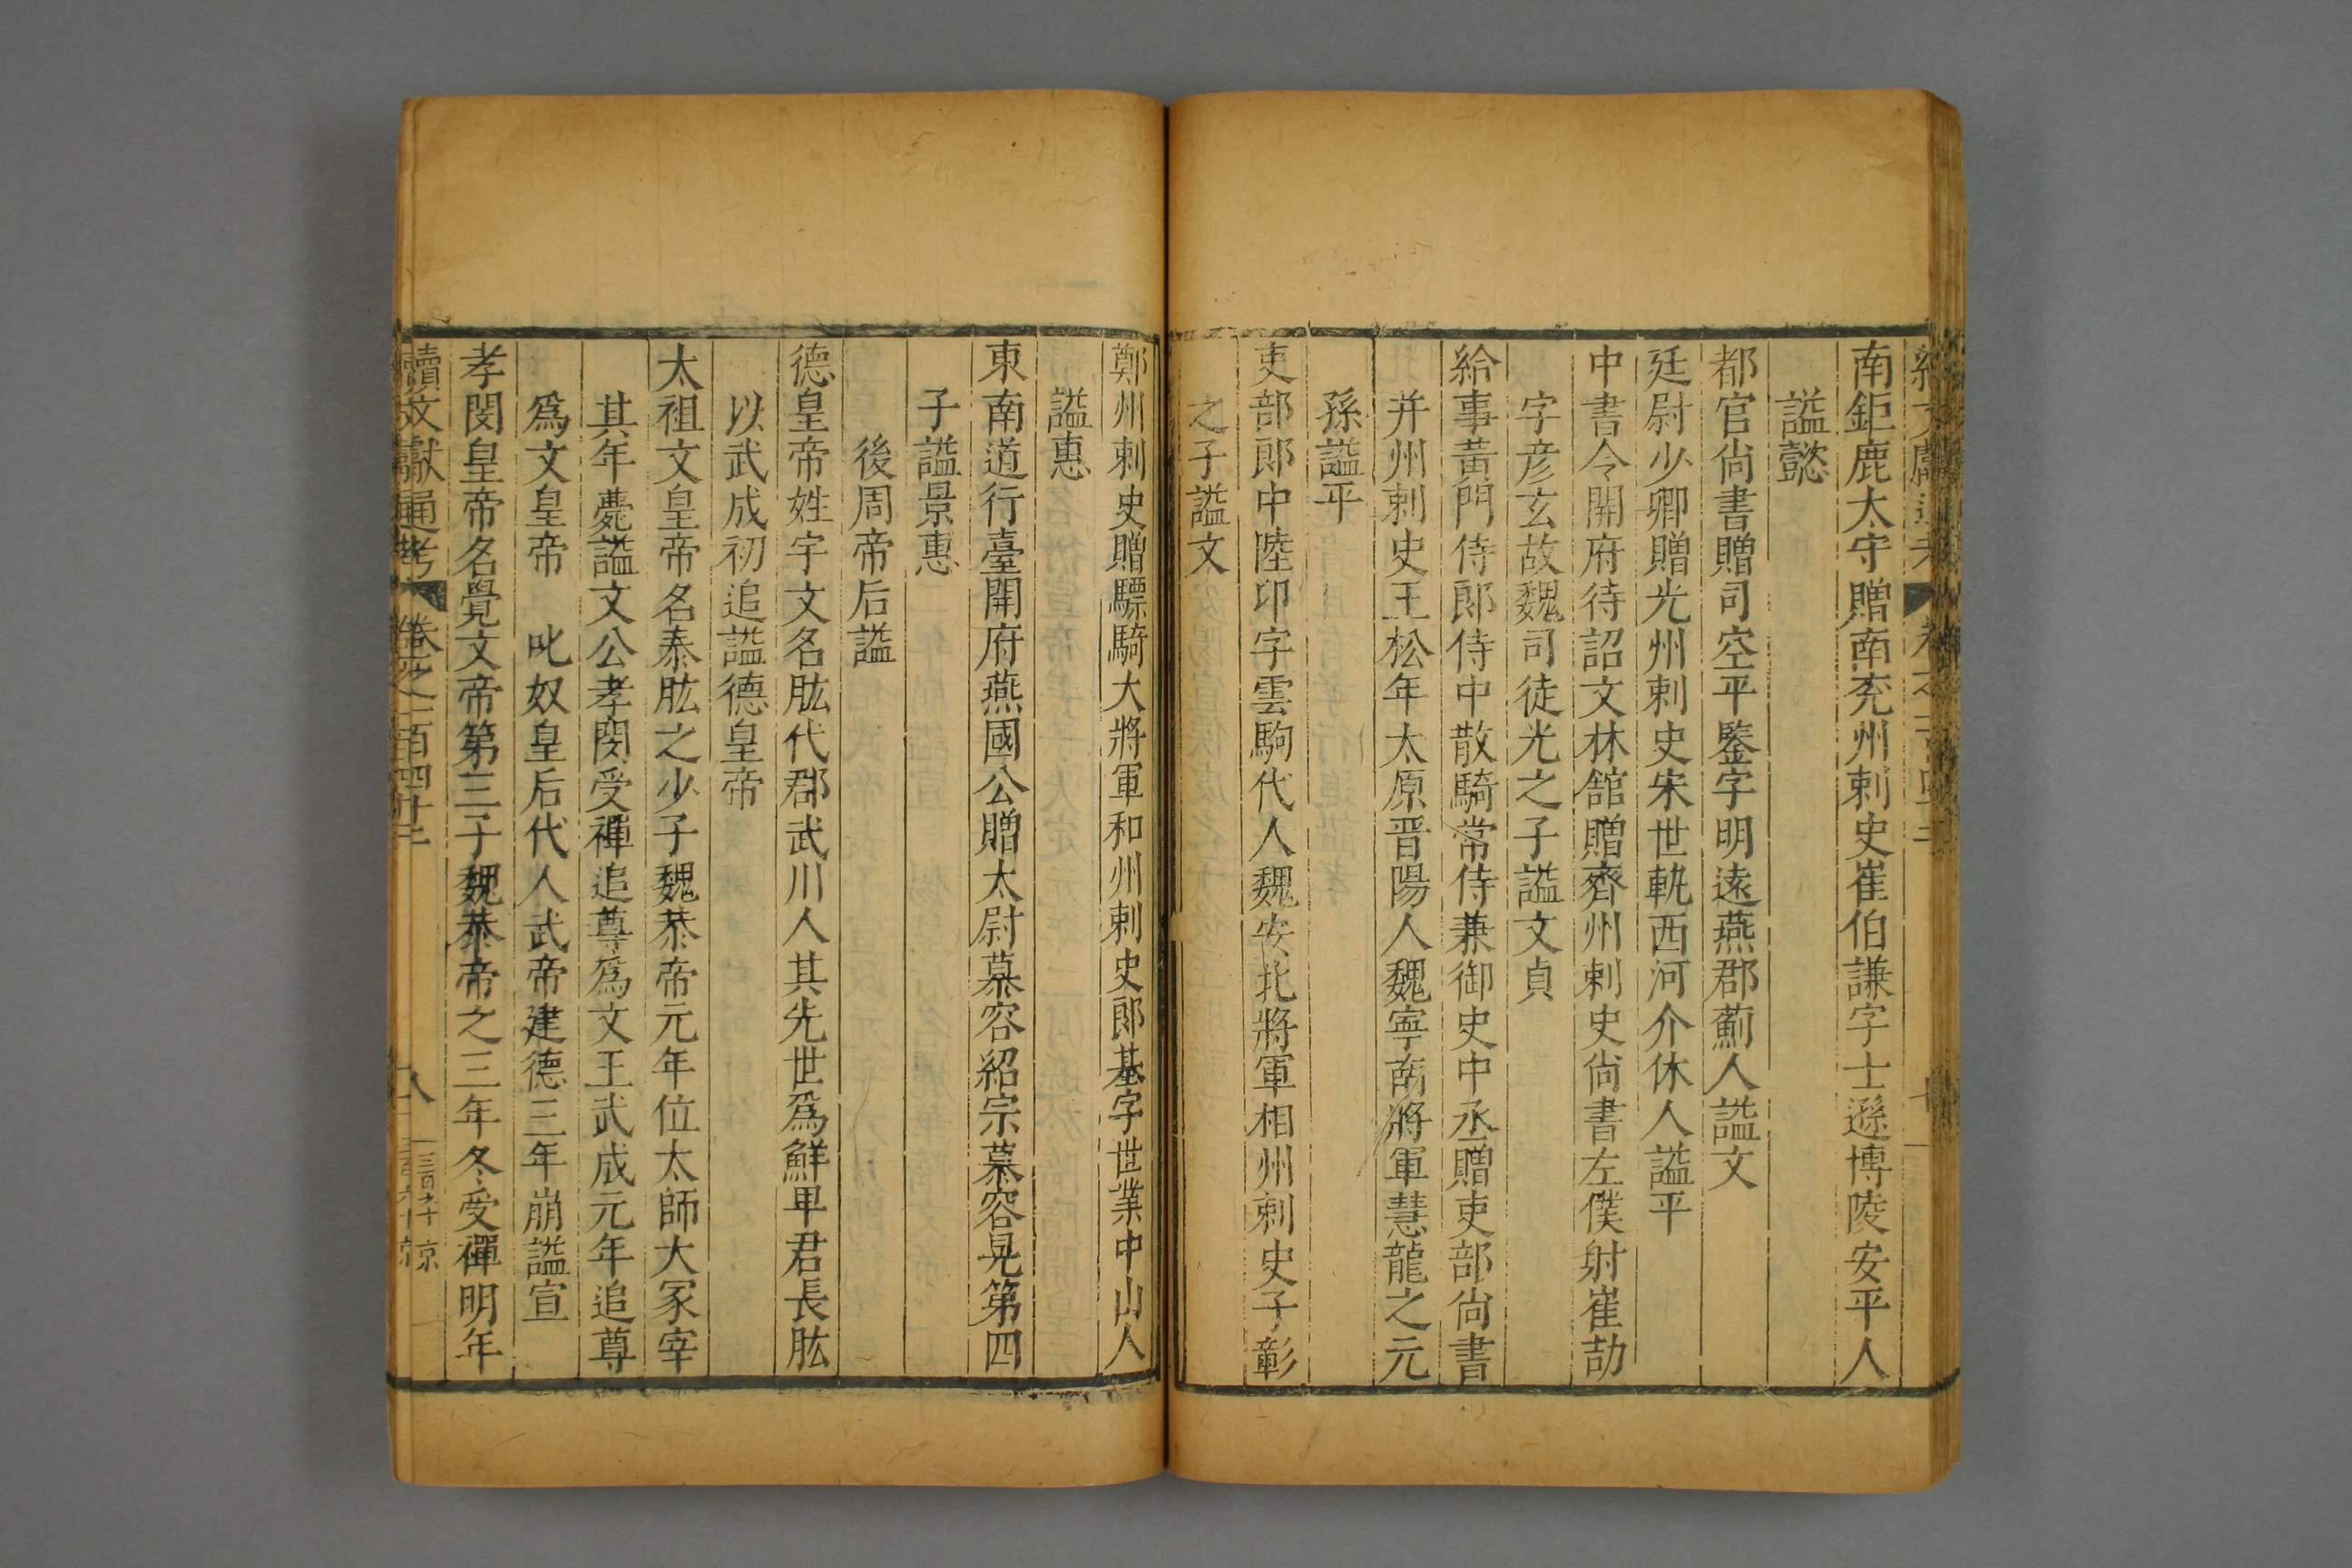 南鉅鹿太守贈南兖州刺史崔伯謙字士遜博陵安平人
謚懿
都官尚書贈司空平鑒字明遠燕郡薊人謚文
廷尉少卿贈光州刺史宋世軌西河介休人謚平
中書令開府待詔文林舘贈齊州刺史尚書左僕射崔劼
字彦玄故魏司徒光之子謚文貞
給事黃門侍郎侍中散騎常侍兼御史中丞贈吏部尚書
并州刺史王松年太原晋陽人魏寧南將軍慧龍之元
孫謚平
吏部郎中陸卭字雲駒代人魏安北將軍相州刺史子彰
之子謚文
鄭州刺史贈驃騎大將軍和州刺史郎基字世業中山人
謚惠
東南道行臺開府燕國公贈太尉慕容紹宗慕容晃第四
子謚景惠
後周帝后謚
德皇帝姓宇文名肱代郡武川人其先世爲鮮甲君長肱
以武成初追謚德皇帝
太祖文皇帝名泰肱之少子魏恭帝元年位太師大冢宰
其年薨謚文公孝閔受禪追尊爲文王武成元年追尊
爲文皇帝 叱奴皇后代人武帝建德三年崩謚宣
孝閔皇帝名覺文帝第三子魏恭帝之三年冬受禪明年
續文獻通考 卷之一百四十三 八